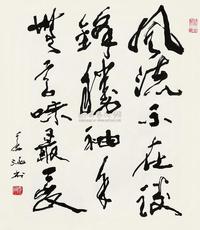 風流不在談
鋒勝袖手
無言味最長